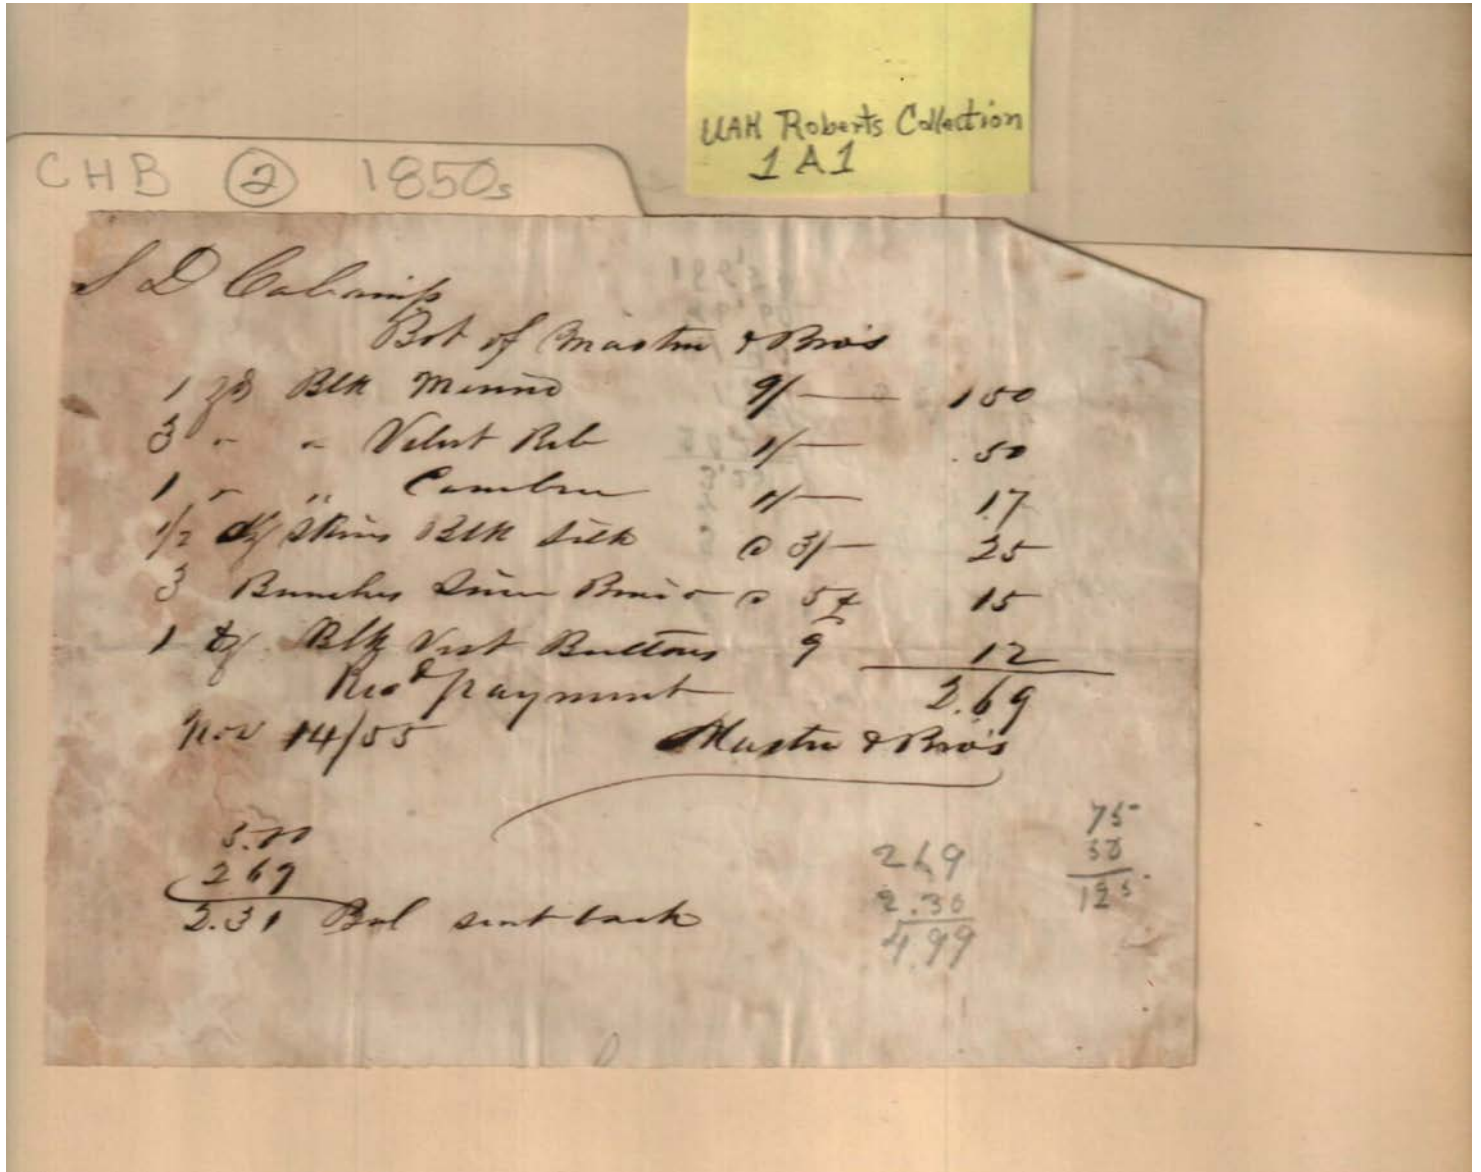 UAH Roberts Collection
1 A 1
CHB ② 1850s
S D Cabaniss
Bot of & Bro's
1 yd Blk Merino 9/— 1 50
3 " " Velvet Rib 1/— .50
1 " " 1/— 17
1/2 dz Skins Blk Silk @ 3/— 25
3 Bunches @ 5¢ 15
1 dz Blk Vest Buttons 9 12
Recd payment 2.69
Nov 14/55 & Bro's
5.00
2 69
2.31 Bal sent back
2 69
2.30
4.99
75
50
125